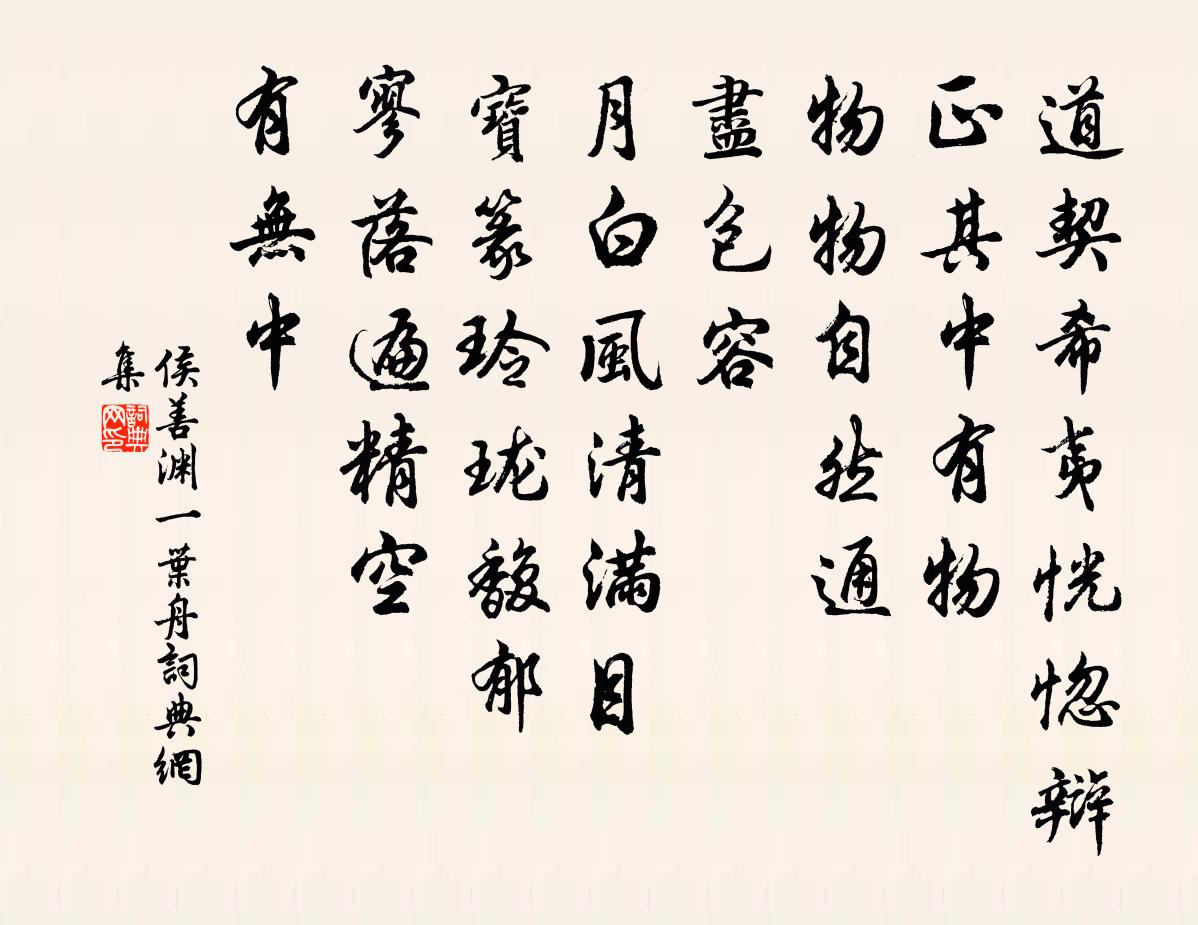 道契希夷恍惚辯
正其中有物
物物自然通
盡包容
月白風清滿目
寶篆玲瓏馥郁
寥落遍精空
有無中
侯善渊一葉舟詞典網
集
詞典网印